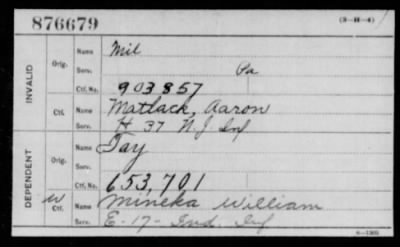 876679
(3-H-4)
INVALID
Orig.
Name Mil
Serv. Pa
Ctf. No. 903857
Ctf.
Name Matlack, Aaron
Serv. H 37 N.J. Inf
DEPENDENT
Orig.
Name Tay
Serv.
Ctf. No. 653,701
W Ctf.
Name Mineka William
Serv. E-17- Ind. Inf
6-1305